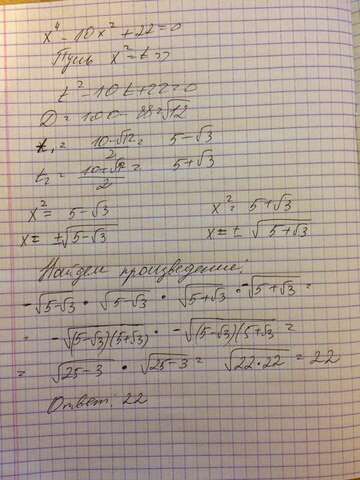 x⁴ - 10x² + 22 = 0
Пусть x² = t ⇒
t² - 10t + 22 = 0
D = 100 - 88 = √12
t₁ = (10 - √12)/2 = 5 - √3
t₂ = (10 + √12)/2 = 5 + √3
x² = 5 - √3 x² = 5 + √3
x = ±√(5 - √3) x = ± √(5 + √3)
Найдем произведение:
-√(5-√3) · √(5-√3) · √(5+√3) · -√(5+√3) =
= -√((5-√3)(5+√3)) · -√((5-√3)(5+√3)) =
= √(25-3) · √(25-3) = √(22·22) = 22
Ответ: 22